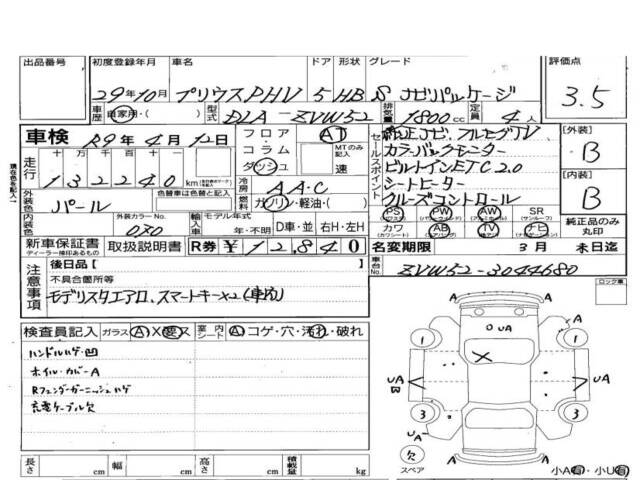 出品番号 初度登録年月 車名 ドア 形状 グレード 評価点
29年10月 プリウスPHV 5 HB S ナビパッケージ 3.5
車歴 自家用・( ) 型式 DLA-ZVW52 排気量 1800cc 定員 4人
車検 R9年4月12日 フロア コラム ダッシュ AT MTのみ記入 速
セールスポイント
純正ナビ,フルセグTV
カラーバックモニター
ビルトインETC2.0
シートヒーター
クルーズコントロール
[外装] B
[内装] B
現在色を記入
走行 十 万 千 百 十
132240 km
外装色 パール 色替車は色替と記入
冷房 AAC
燃料 ガソリン・軽油・( )
内装色 外装カラーNo. 070 輸入車 モデル年式 年・不明 D車・並 右H・左H
PS AW SR
(パワーステアリング) (サンルーフ)
カワ AB TV ナビ
純正品のみ丸印
新車保証書 取扱説明書 R券 ¥12,840
ディーラー捺印あるもの
名変期限 3月 末日迄
車台No. ZVW52-3044680
注意事項
後日品[ ]
不具合箇所等
モデリスタエアロ、スマートキー×2(車内)
ロック車
検査員記入 ガラス A X 要 ス 室内シート A コゲ・穴・汚れ・破れ
ハンドルハゲ・凹
ホイルカバーA
Rフェンダーガーニッシュハゲ
充電ケーブル欠
UA
A
1 1
UA
凹
UA
3 3
UA
A A
欠
スペア
小A有・小U有
長さ cm 幅 cm 高さ cm 積載量 kg